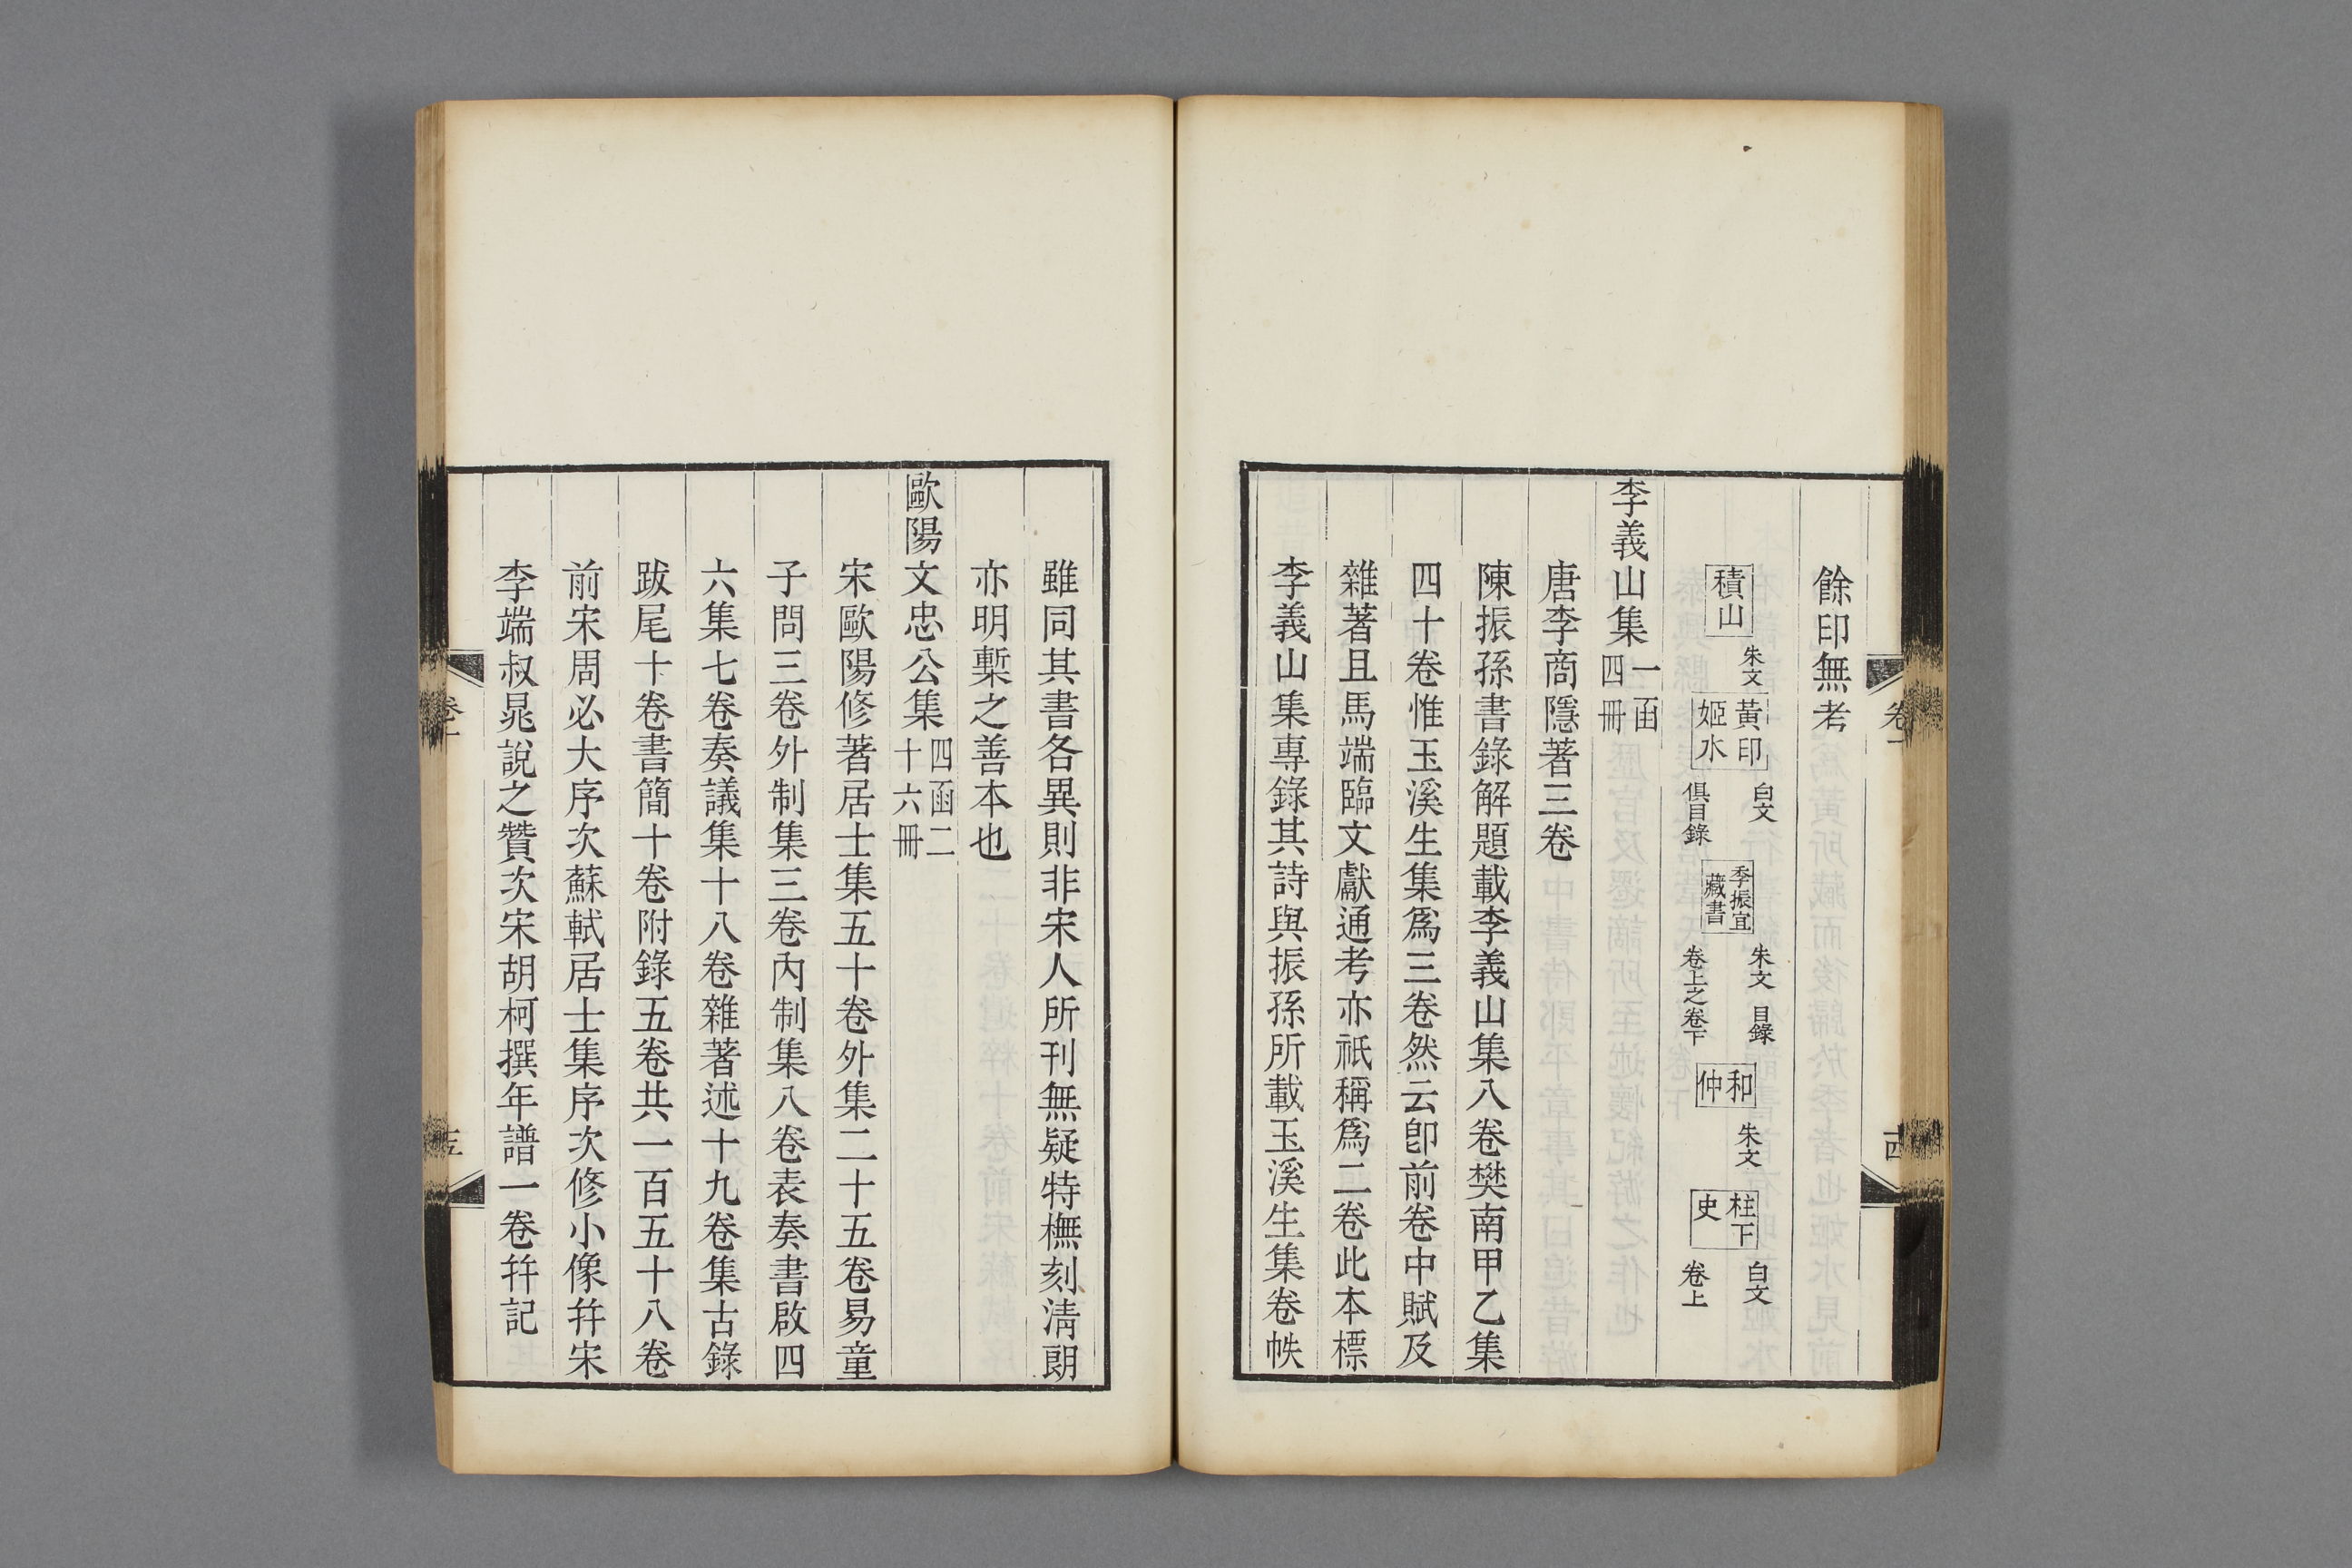 餘印無考
積山 朱文 黃印姬水 白文 俱目錄 季振宜藏書 朱文 目錄 卷上之卷下 和仲 朱文 柱下史 白文 卷上
李義山集 一函四冊
唐李商隱著三卷
陳振孫書錄解題載李義山集八卷樊南甲乙集
四十卷惟玉溪生集爲三卷然云卽前卷中賦及
雜著且馬端臨文獻通考亦祇稱爲二卷此本標
李義山集專錄其詩與振孫所載玉溪生集卷帙
雖同其書各異則非宋人所刊無疑特橅刻淸朗
亦明槧之善本也
歐陽文忠公集 四函二十六冊
宋歐陽修著居士集五十卷外集二十五卷易童
子問三卷外制集三卷內制集八卷表奏書啟四
六集七卷奏議集十八卷雜著述十九卷集古錄
跋尾十卷書簡十卷附錄五卷共一百五十八卷
前宋周必大序次蘇軾居士集序次修小像幷宋
李端叔晁說之贊次宋胡柯撰年譜一卷幷記